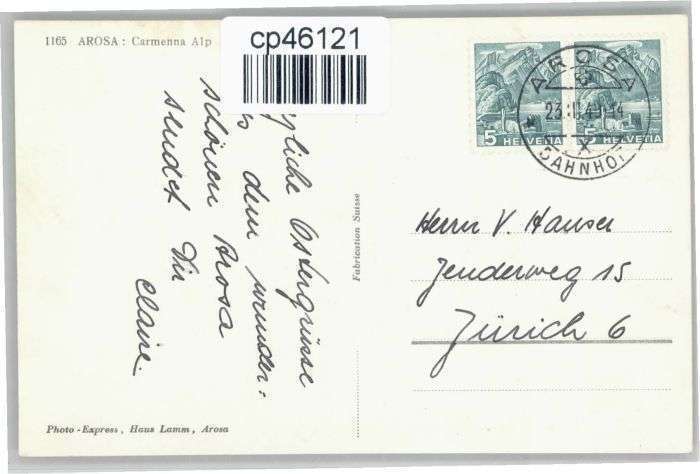 1165 AROSA: Carmenna Alp
cp46121
gliche Ostergrüsse
s dem wunder-
schönen Arosa
sendet Dir
Claire.
Fabrication Suisse
5 HELVETIA
5 HELVETIA
AROSA
BAHNHOF
Herrn V. Hauser
Jenderweg 15
Zürich 6
Photo-Express, Haus Lamm, Arosa